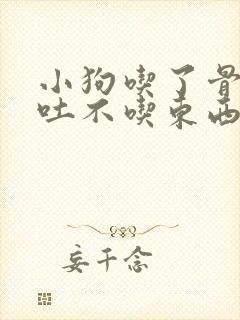 小狗喫了骨
吐不喫東西
妄千念